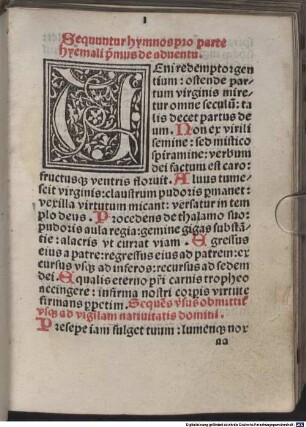 I
Sequuntur hymnos pro parte
hyemali p̄mus de aduentu.
UEni redemptor gen
tium: ostende par
tum virginis mire
tur omne seculū: ta
lis decet partus de
um. Non ex virili
semine: sed mistico
spiramine: verbum
dei factum est caro
fructusqȝ ventris floruit. Aluus tume
scit virginis: claustrum pudoris ꝑmanet:
vexilla virtutum micant: versatur in tem
plo deus. Procedens de thalamo suo:
pudoris aula regia: gemine gigas substā
tie: alacris vt currat viam. Egressus
eius a patre: regressus eius ad patrem: ex
cursus vsqȝ ad inferos: recursus ad sedem
dei. Equalis eterno pr̄i carnis tropheo
accingere: infirma nostri corpis virtute
firmans ꝑpetim. Sequēs v̓sus odmittit̓
vsqȝ ad vigilam natiuitatis domini.
Presepe iam fulget tuum: lumenqȝ nox
aa